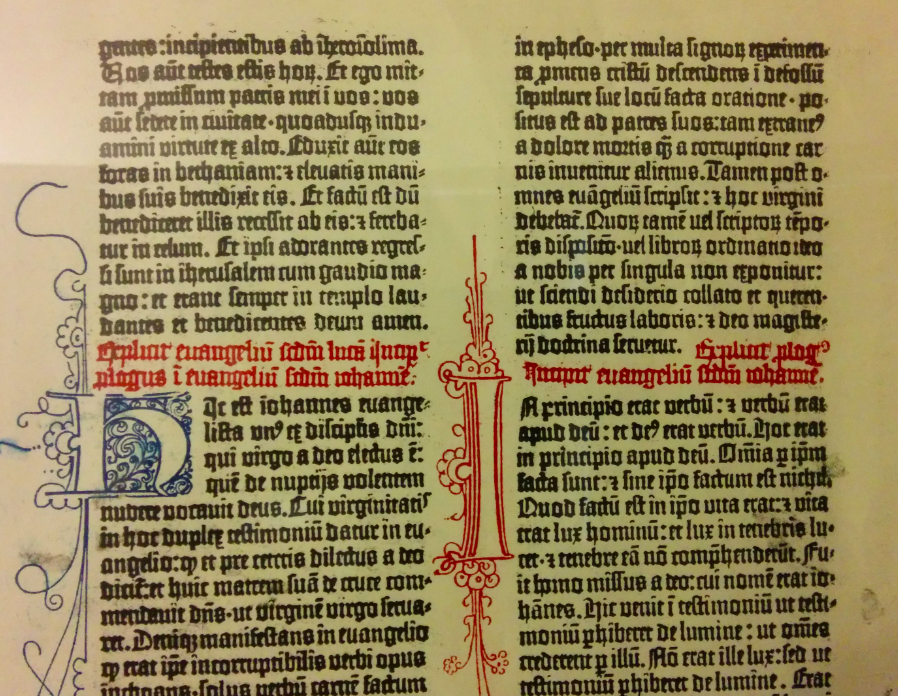 gentes: incipientibus ab iherosolima.
Uos aūt testes estis hoꝝ. Et ego mit-
tam ꝓmissum patris mei ī uos: uos
aūt sedete in ciuitate · quoadusqꝫ indu-
amini virtute ex alto. Eduxit aūt eos
foras in bethaniam: ⁊ eleuatis mani-
bus suis benedixit eis. Et factū est dū
benediceret illis recessit ab eis: ⁊ fereba-
tur in celum. Et ipsi adorantes regres-
si sunt in iherusalem cum gaudio ma-
gno: et erant semper in templo lau-
dantes et benedicentes deum amen.
Explicit euangeliū scdm lucā Incipit
plogus ī euangeliū scdm iohannē.
Hic est iohannes euange-
lista vnꝰ ex discipłis dn̄i:
qui virgo a deo electus ē:
quē de nuptijs volentem
nubere vocauit deus. Cui virginitatis
in hoc duplex testimoniū datur in eu-
angelio: ꝙ et pre ceteris dilectus a deo
dicit̄: et huic matrem suā de cruce com-
mendauit dn̄s · ut virginē virgo serua-
ret. Deniqꝫ manifestans in euangelio
ꝙ erat ip̄e incorruptibilis verbi opus
inchoans · solus verbū carnē factum
in epheso · per multa signoꝝ experimen-
ta ꝓmens cristū descendens ī defossū
sepulture sue locū facta oratione · po-
situs est ad patres suos: tam extraneꝰ
a dolore mortis q̄ȝ a corruptione car
nis inuenitur alienus. Tamen post o-
mnes euāgeliū scripsit: ⁊ hoc virgini
debebat̄. Quoꝝ tamē uel scriptoꝝ tēpo-
ris dispositio · uel libroꝝ ordinatio ideo
a nobis per singula non exponitur:
ut sciendi desiderio collato et queren-
tibus fructus laboris: ⁊ deo magiste-
rij doctrina seruetur. Explicit plogꝰ
Incipit euangeliū scdm iohannē.
In principio erat verbū: ⁊ verbū erat
apud deū: et deꝰ erat verbū. Hoc erat
in principio apud deū. Omīa ꝑ ip̄m
facta sunt: ⁊ sine ip̄o factum est nichil.
Quod factū est in ip̄o vita erat: ⁊ vita
erat lux hominū: et lux in tenebris lu-
cet · ⁊ tenebre eā nō comp̄henderūt. Fu-
it homo missus a deo: cui nomē erat io-
hānes. Hic venit ī testimoniū ut testi-
moniū phiberet de lumine: ut om̄es
crederent ꝑ illū. Nō erat ille lux: sed ut
testimoniū phiberet de lumine. Erat